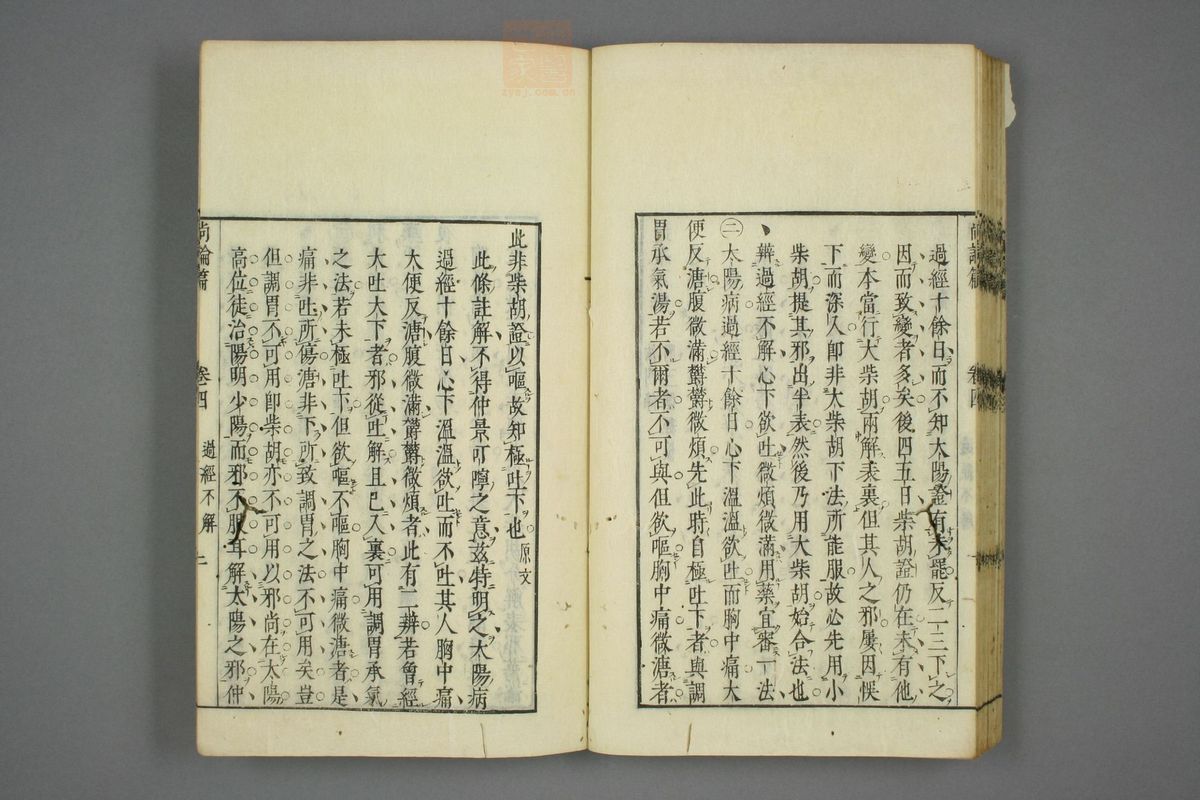 尚論篇 卷四 一
過經十餘日而不知太陽證有未罷反二三下之
因而致變者多矣後四五日柴胡證仍在未有他
變本當行大柴胡兩解表裏但其人之邪屢因悞
下而深入卽非大柴胡下法所能服故必先用小
柴胡提其邪出半表然後乃用大柴胡始合法也
辨過經不解心下欲吐微煩微滿用藥宜審一法
㊁太陽病過經十餘日心下溫溫欲吐而胸中痛大
便反溏腹微滿鬱鬱微煩先此時自極吐下者與調
胃承氣湯若不爾者不可與但欲嘔胸中痛微溏者
此非柴胡證以嘔故知極吐下也原文
此條註解不得仲景叮嚀之意茲特明之太陽病
過經十餘日心下溫溫欲吐而不吐其人胸中痛
大便反溏腹微滿鬱鬱微煩者此有二辨若曾經
大吐大下者邪從吐解且巳入裏可用調胃承氣
之法若未極吐下但欲嘔不嘔胸中痛微溏者是
痛非吐所傷溏非下所致調胃之法不可用矣豈
但調胃不可用卽柴胡亦不可用以邪尚在太陽
高位徒治陽明少陽而邪不服耳解太陽之邪仲
尚論篇 卷四 過經不解 二
zysj.com.cn